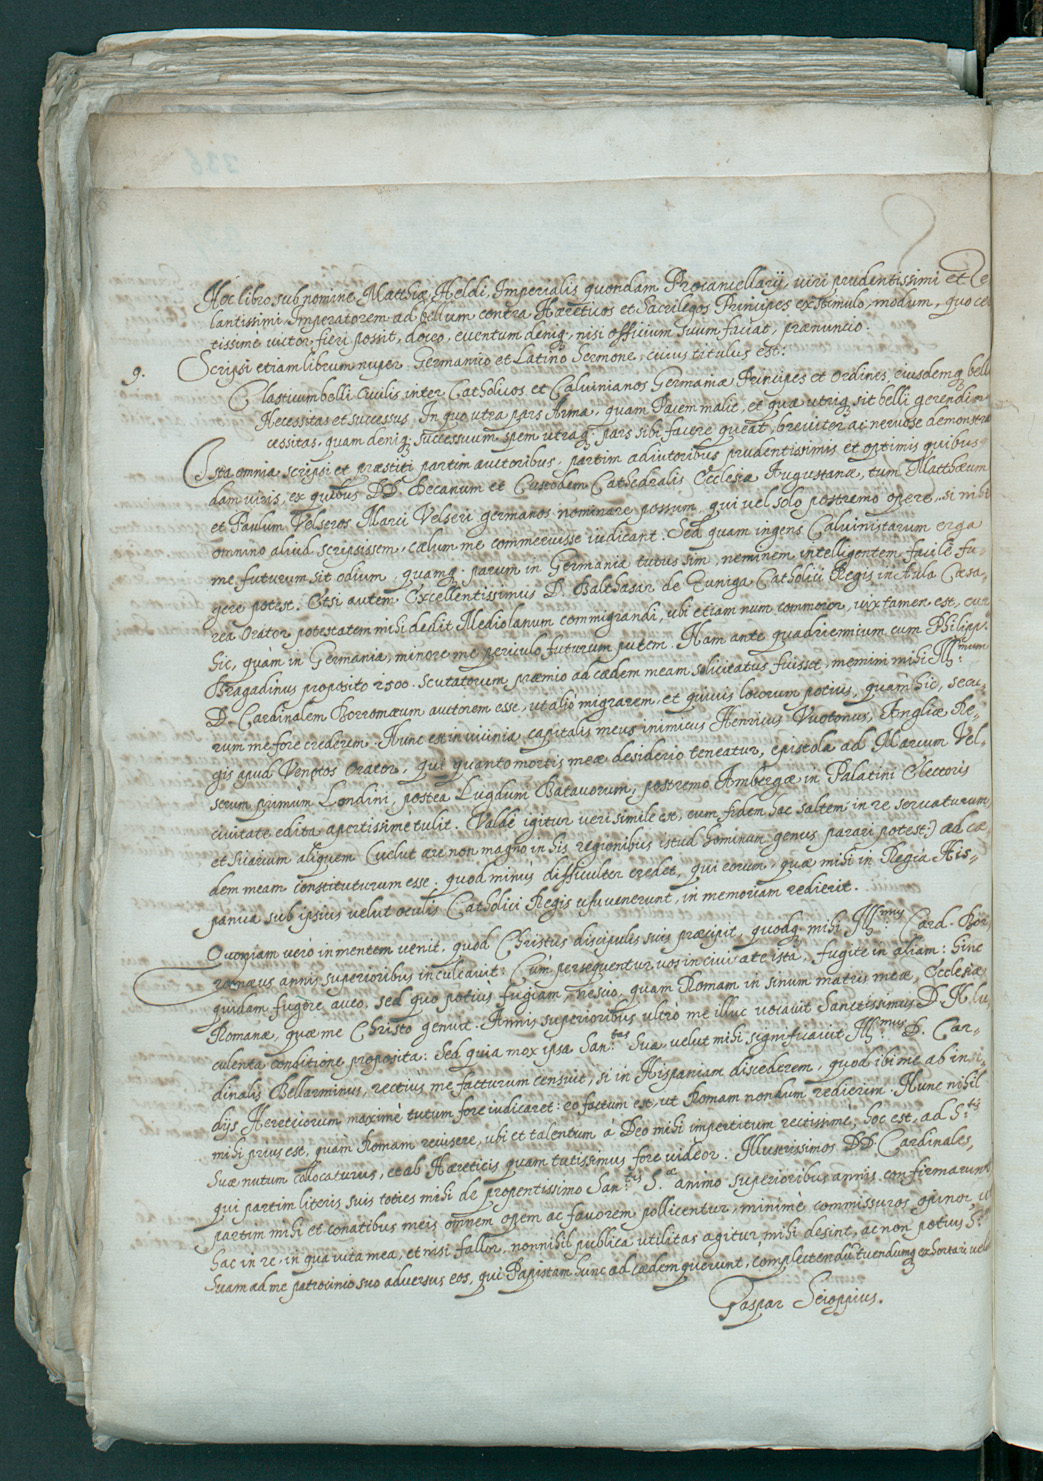 Hoc libro, sub nomine Matthiæ Heldi, Imperialis quondam Procancellarij, viri prudentissimi et Ze
lantissimi, Imperatorem ad bellum contra Hæreticos et Sacrilegos Principes exstimulo, modum, quo ce
tissimè victor fieri possit, doceo, eventum deniq, nisi officium suum faciat, prænuncio.
9. Scripsi etiam librum nuper, Germanico et Latino Sermone, cuius titulus est:
Classicum belli Civilis inter Catholicos et Calvinianos Germaniæ Principes et Ordines, eiusdemq belli
Necessitas et successus. In quo utra pars Arma, quam Pacem malit, et quæ utriq sit belli gerendi ne
cessitas, quam deniq successuum spem utraq pars sibi facere queat, breviter ac nervose demonstra
Ista omnia scripsi et præstiti partim auctoribus, partim adiutoribus prudentissimis et optimis quibus
dam viris, ex quibus DD. Decanum et Custodem Cathedralis Ecclesiæ Augustanæ, tum Matthæum
et Paulum Velseros Marci Velseri germanos nominare possum, qui vel solo postremo opere, si nihil
omnino aliud scripsissem, cælum me commeruisse iudicant. Sed quam ingens Calvinistarum erga
me futurum sit odium, quamq parum in Germania tutus sim, neminem intelligentem facile fu-
gere potest. Etsi autem Excellentissimus D. Balthasar de Zuniga Catholici Regis in Aula Cæsa-
rea Orator potestatem mihi dedit Mediolanum commigrandi, ubi etiam num commoror, vix tamen est, cur
hic, quàm in Germania, minore me periculo futurum putem. Nam ante quadriennium cum Philipp.
Bragadinus proposito 2500. Scutatorum præmio ad cædem meam solicitatus fuisset, memini mihi Illmum
D. Cardinalem Borromæum auctorem esse, ut alio migrarem, et quiuis locorum potius, quam hic, secu-
rum me fore crederem. Nunc est in vicinia capitalis meus inimicus Henricus Vuotonus, Angliæ Re-
gis apud Venetos Orator, qui quanto mortis meæ desiderio teneatur, epistola ad Marcum Vel-
serum primùm Londini, postea Lugduni Batavorum, postremo Ambergæ in Palatini Electoris
civitate edita apertissimè tulit. Valdè igitur veri simile est, eum fidem hac saltem in re servaturum
et sicarium aliquem (velut ære non magno in his regionibus istud hominum genus parari potest) ad cæ
dem meam constituturum esse: quod minus difficulter credet, qui eorum, quæ mihi in Regia His-
panica sub ipsius velut oculis Catholici Regis usu venerunt, in memoriam redierit.
Quoniam verò in mentem venit, quod Christus discipulis suis præcipit, quodq mihi Illmus Card. Bor-
romæus annis superioribus inculcavit: Cùm persequentur vos in civitate ista, fugite in aliam: hinc
quidam fugere aveo, sed quo potius fugiam, nescio, quam Romam in sinum matris meæ, Ecclesiæ
Romanæ, quæ me Christo genuit. Annis superioribus ultrò me illuc vocavit Sanctissimus D. N. lu
culenta conditione proposita: Sed quia mox ipsa San.tas Sua velut mihi significavit Illmus D. Car-
dinalis Bellarminus, rectius me facturum censuit, si in Hispaniam discederem, quod ibi me ab insi
dijs Hereticorum maximè tutum fore iudicaret: eo factum est, ut Romam nondum redierim. Nunc nihil
mihi prius est, quam Romam revisere, ubi et talentum à Deo mihi impertitum rectissimè, hoc est, ad S.tis
Suæ nutum collocaturus, et ab Hæreticis quam tutissimus fore videor. Illustrissimos DD. Cardinales,
qui partim literis suis toties mihi de propentissimo San.tis S.æ animo superioribus annis confirmarunt
partim mihi et conatibus meis omnem opem ac favorem pollicentur, minimè commissuros opinor, ut
hac in re, in qua vita mea, et nisi fallor, nonnihil publica utilitas agitur, mihi desint, ac non potius S.tem
suam ad me patrocinio suo adversus eos, qui Papistam hunc ad cædem quærunt, complectendũ tuendumq exhortari velint
Gaspar Scioppius.